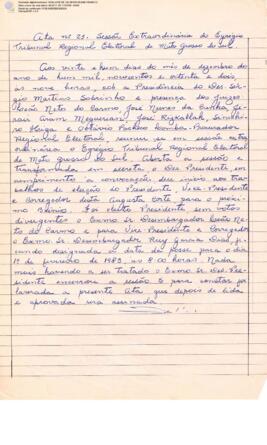 Ata nº 25. Sessão Extraordinária do Egrégio
Tribunal Regional Eleitoral de Mato Grosso do Sul.
Aos vinte e hum dias do mês de dezembro do
ano de hum mil, novecentos e oitenta e dois,
às nove horas, sob a Presidência do Des. Sér-
gio Martins Sobrinho e presença dos Juízes
Leão Neto do Carmo, José Nunes da Cunha, Ge-
Jesus
José Rizkallah,
e Octávio Procurador
Regional Eleitoral, reuniu-se em sessão extra-
ordinária o Egrégio Tribunal Regional Eleitoral
de Mato Grosso do Sul. Aberta a sessão e
transformada em secreta, o Des. Presidente em
cumprimento a convocação deu início aos tra-
balhos de eleição do Presidente, Vice-Presidente
e Corregedor desta Augusta Corte para o próxi-
mo Biênio. Foi eleito Presidente sem voto
divergente o Exmo. Sr. Desembargador Leão Ne-
to do Carmo e para Vice Presidente e Corregedor
o Exmo. Sr. Desembargador Ruy Garcia Dias, fi-
cando designada a data de posse para o dia
1º de fevereiro de 1983, às 8:00 horas. Nada
mais havendo a ser tratado o Exmo. Sr. Des. Pre-
sidente encerrou a sessão. E para constar foi
lavrada a presente Ata que depois de lida
e aprovada vai assinada